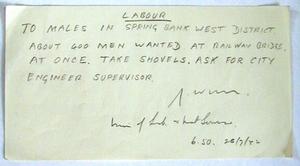 LABOUR
TO MALES IN SPRING BANK WEST DISTRICT
ABOUT 600 MEN WANTED AT RAILWAY BRIDGE,
AT ONCE. TAKE SHOVELS. ASK FOR CITY
ENGINEER SUPERVISOR
of
6.50.